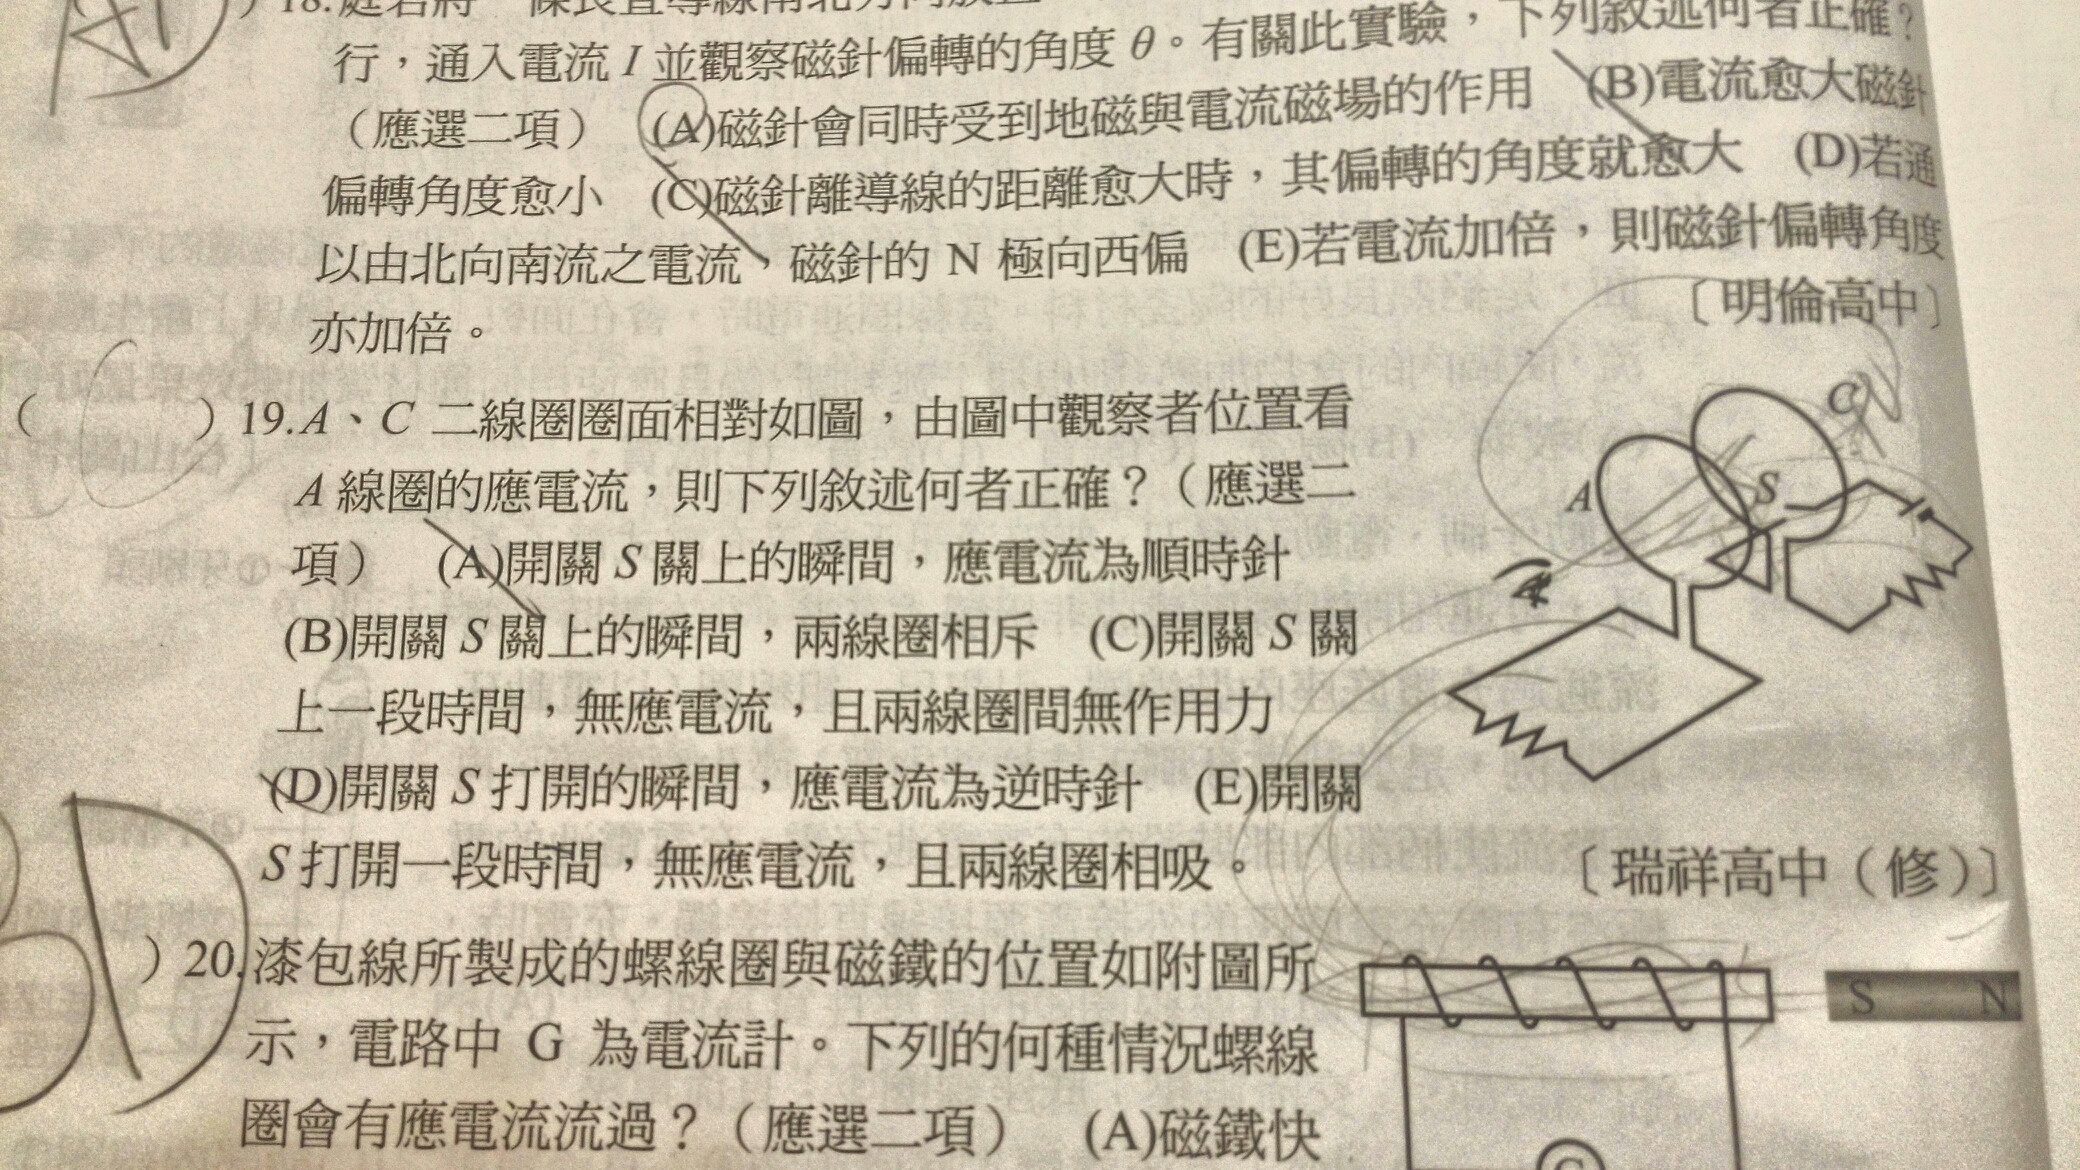 行，通入電流 I 並觀察磁針偏轉的角度 θ。有關此實驗，下列敘述何者正確？
（應選二項） (A)磁針會同時受到地磁與電流磁場的作用 (B)電流愈大磁針
偏轉角度愈小 (C)磁針離導線的距離愈大時，其偏轉的角度就愈大 (D)若通
以由北向南流之電流，磁針的 N 極向西偏 (E)若電流加倍，則磁針偏轉角度
亦加倍。 〔明倫高中〕
( ) 19. A、C 二線圈圈面相對如圖，由圖中觀察者位置看
A 線圈的應電流，則下列敘述何者正確？（應選二
項） (A)開關 S 關上的瞬間，應電流為順時針
(B)開關 S 關上的瞬間，兩線圈相斥 (C)開關 S 關
上一段時間，無應電流，且兩線圈間無作用力
(D)開關 S 打開的瞬間，應電流為逆時針 (E)開關
S 打開一段時間，無應電流，且兩線圈相吸。
〔瑞祥高中（修）〕
A
C
S
N
BD
) 20. 漆包線所製成的螺線圈與磁鐵的位置如附圖所
示，電路中 G 為電流計。下列的何種情況螺線
圈會有應電流流過？（應選二項） (A)磁鐵快
S N